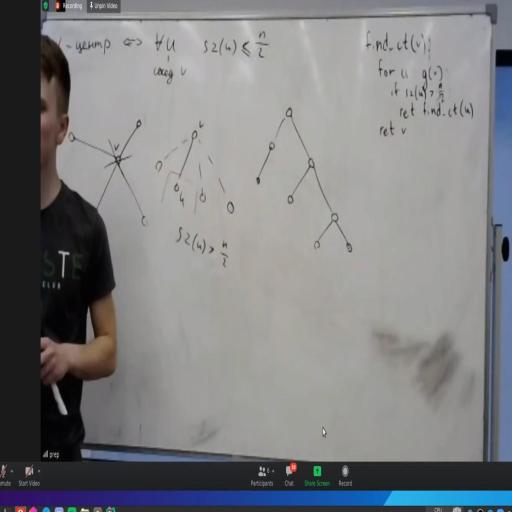 Recording
Unpin Video
-центр <=> ∀u sz(u) ≤ n/2
сосед v
find_ct(v):
for u g(v)
if sz(u) > n/2
ret find_ct(u)
ret v
v
v
u
sz(u) > n/2
STE
prep
Start Video
Participants
Chat
Share Screen
Record